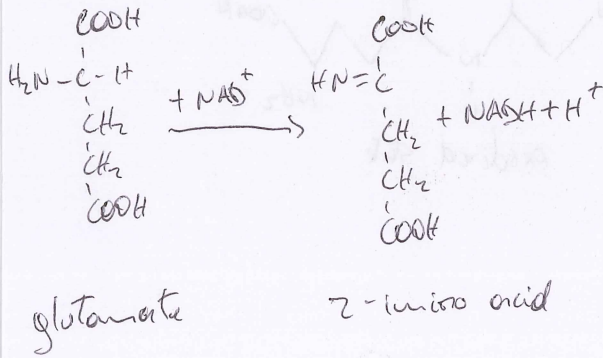 COOH
H₂N-C-H
CH₂
CH₂
COOH
+ NAD⁺
COOH
HN=C
CH₂
CH₂
COOH
+ NADH + H⁺
glutamate
2-imino acid